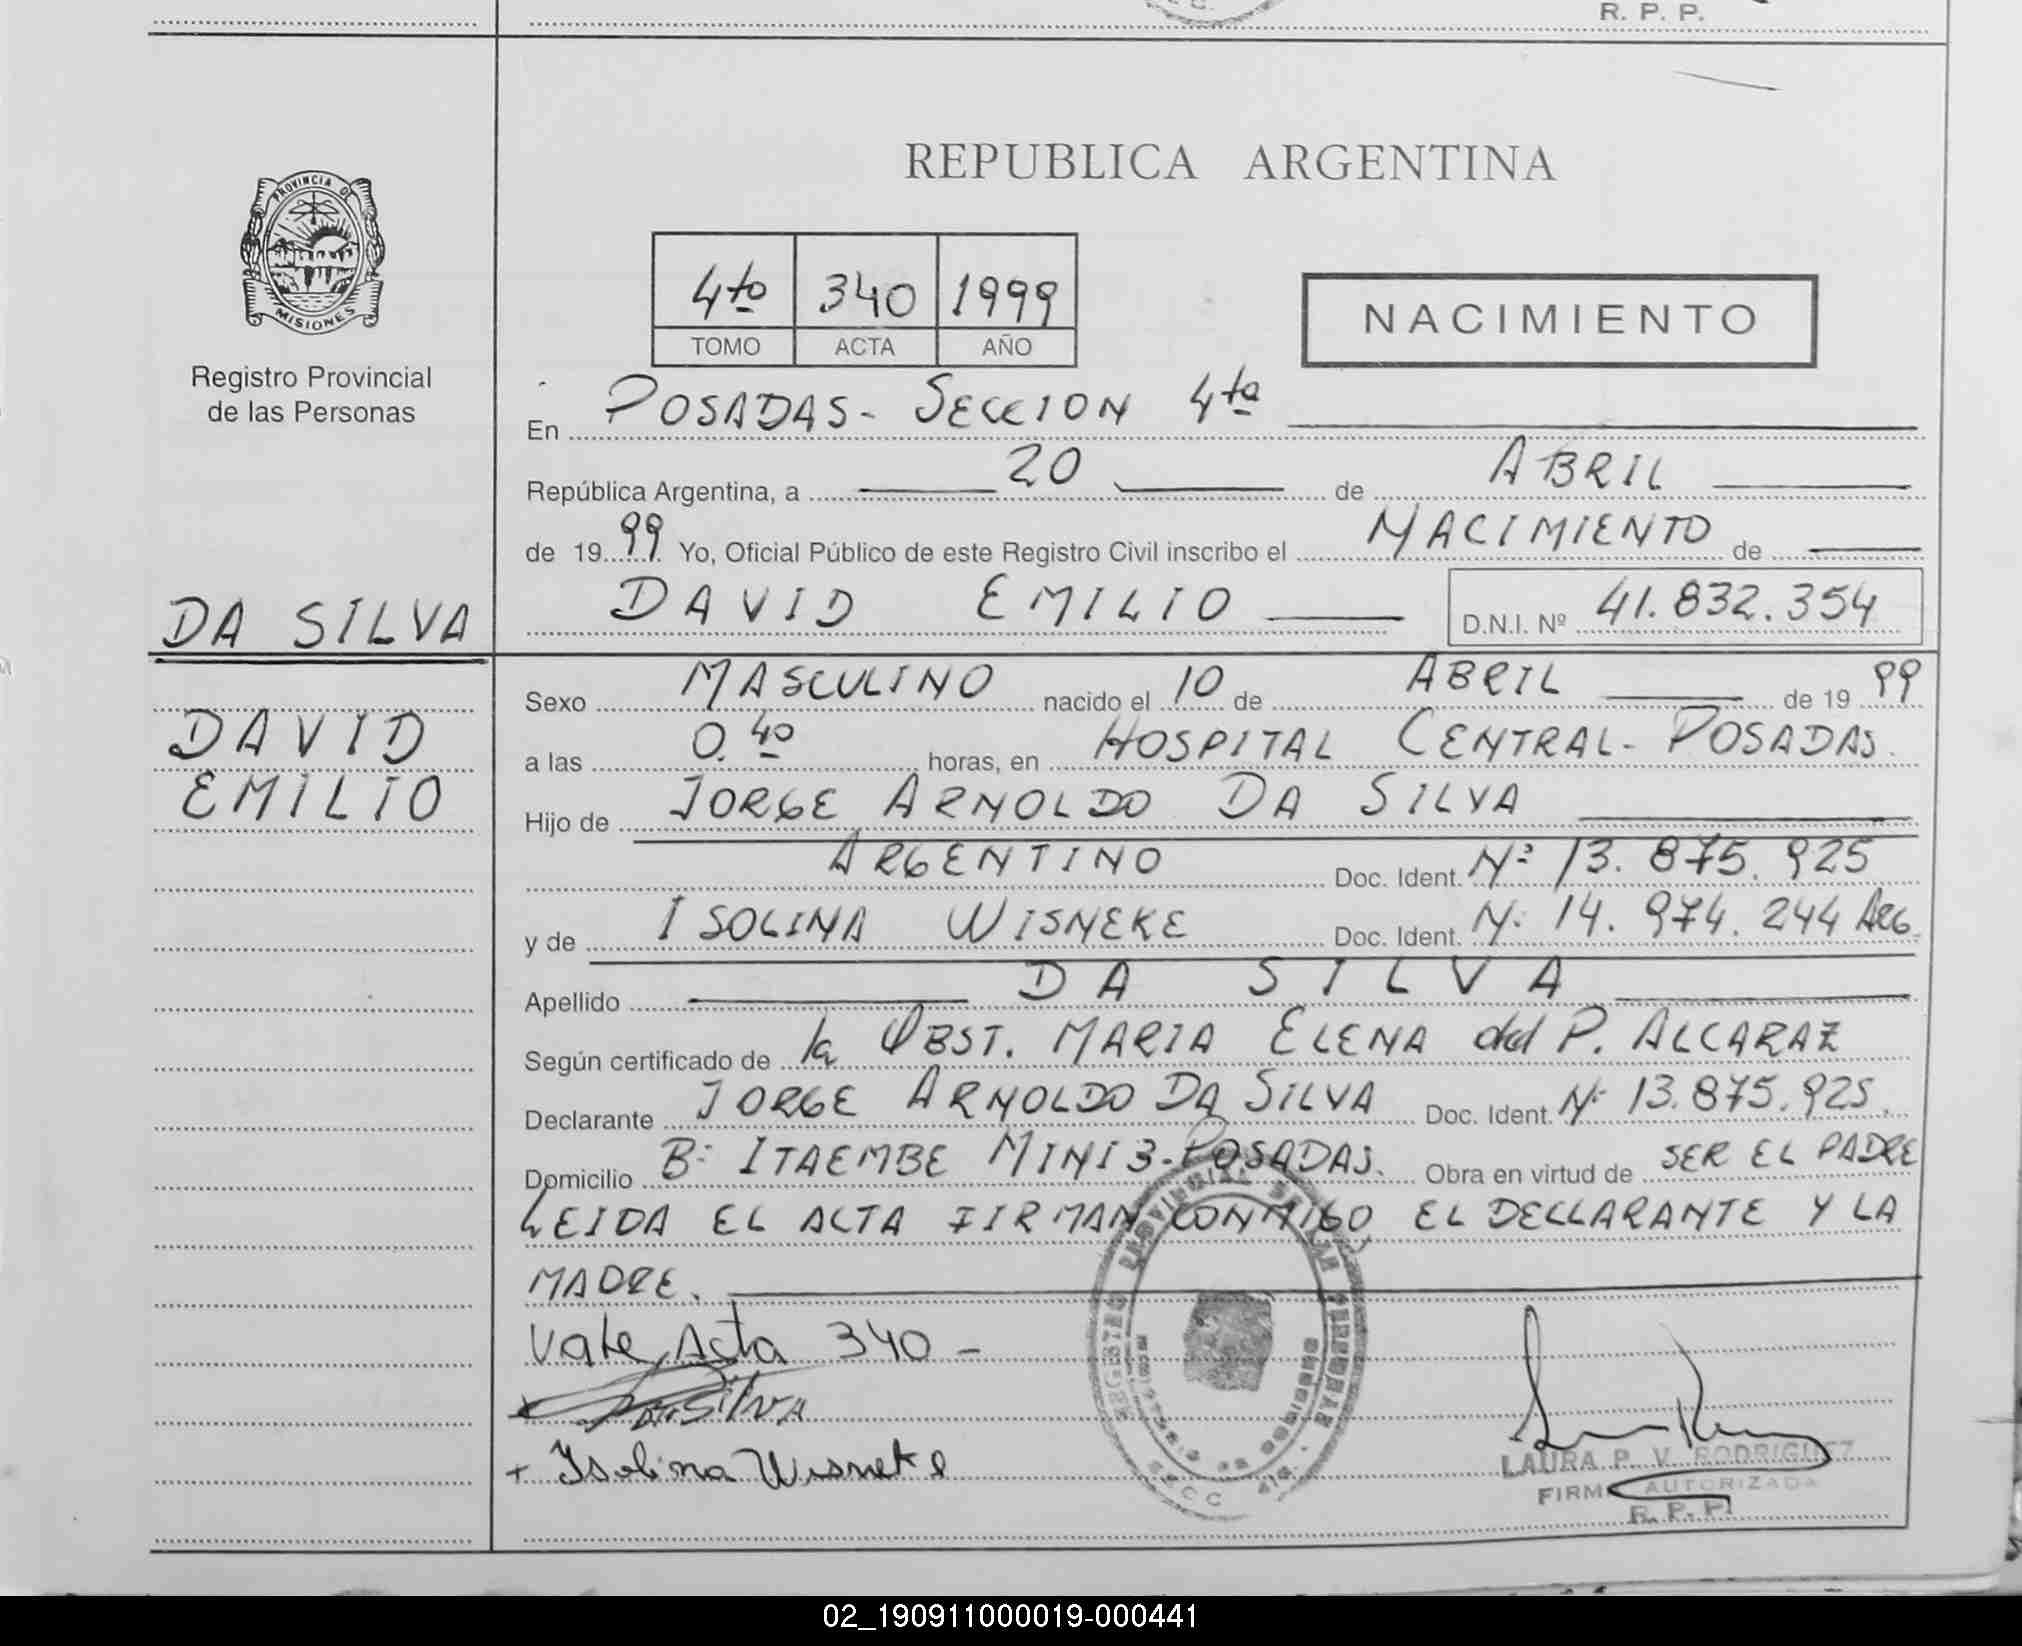 R. P. P.
REPUBLICA ARGENTINA
PROVINCIA DE
MISIONES
Registro Provincial
de las Personas
4to 340 1999
TOMO ACTA AÑO
NACIMIENTO
En POSADAS - SECCION 4ta
República Argentina, a 20 de ABRIL
de 1999 Yo, Oficial Público de este Registro Civil inscribo el NACIMIENTO de
DAVID EMILIO D.N.I. Nº 41.832.354
DA SILVA
DAVID
EMILIO
Sexo MASCULINO nacido el 10 de ABRIL de 1999
a las 0.40 horas, en HOSPITAL CENTRAL - POSADAS.
Hijo de JORGE ARNOLDO DA SILVA
ARGENTINO Doc. Ident. Nº 13.875.925
y de ISOLINA WISNEKE Doc. Ident. Nº 14.974.244 ARG.
Apellido DA SILVA
Según certificado de la OBST. MARIA ELENA del P. ALCARAZ
Declarante JORGE ARNOLDO DA SILVA Doc. Ident. Nº 13.875.925.
Domicilio Bº ITAEMBE MINI 3 - POSADAS. Obra en virtud de SER EL PADRE
LEIDA EL ACTA FIRMAN CONMIGO EL DECLARANTE Y LA
MADRE.
Vale Acta 340 -
Da Silva
+ Isolina Wisneke
LAURA P. V. RODRIGUEZ
FIRMA AUTORIZADA
R. P. P.
02_190911000019-000441